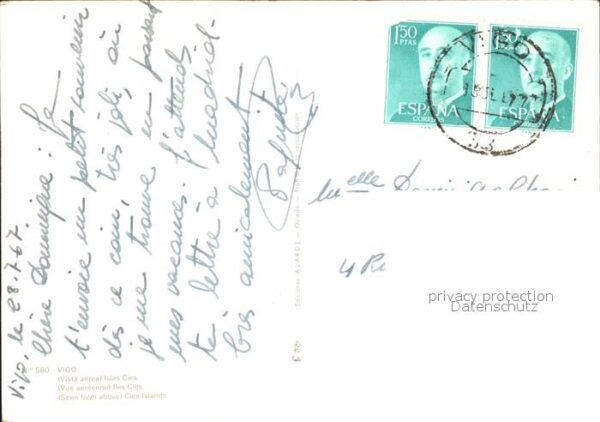 Vigo, le 28.7.67
Chère Dominique : Je
t'envoie un petit souvenir
dès ce coin, très joli, où
je me trouve en passant
mes vacances. J'attends
ta lettre à Madrid.
Très amicalement
Nº 580 - VIGO
(Vista aérea) Islas Cíes
(Vue aérienne) Iles Cies
(Seen from above) Cies Islands
Ediciones ALARDE - Oviedo -
1'50
PTAS
ESPAÑA
CORREOS
1'50
ESPAÑA
VIGO
Melle Dominique
4 R
privacy protection
Datenschutz